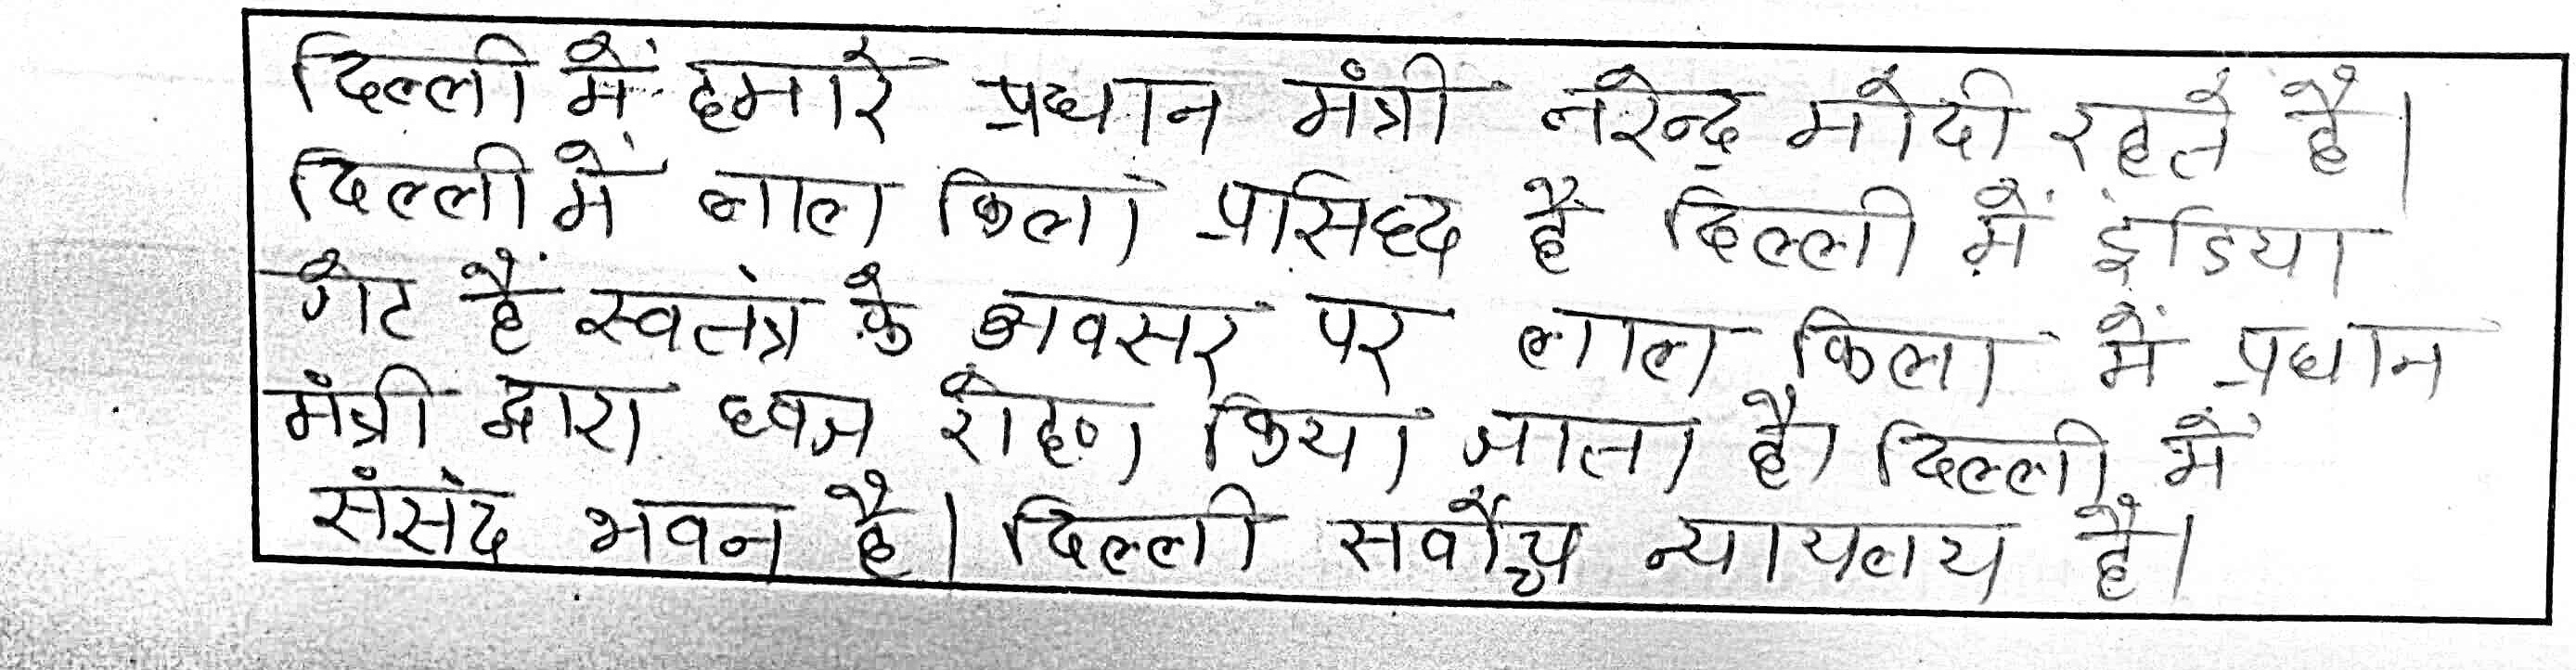 दिल्ली में हमारे प्रधान मंत्री नरेन्द्र मोदी रहते है।
दिल्ली में लाल किला प्रसिध्द है दिल्ली में इंडिया
गेट हैं स्वतंत्र के अवसर पर लाल किला में प्रधान
मंत्री द्वारा ध्वज रोहण किया जाता है। दिल्ली में
संसंद भवन है। दिल्ली सर्वोच्च न्यायलय है।